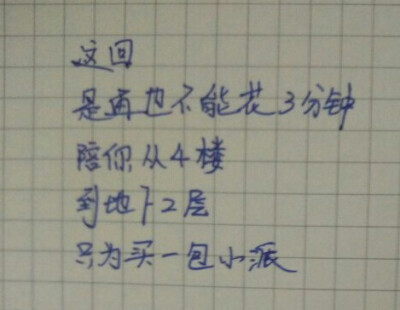 这回
是再也不能花3分钟
陪你从4楼
到地下2层
只为买一包小派